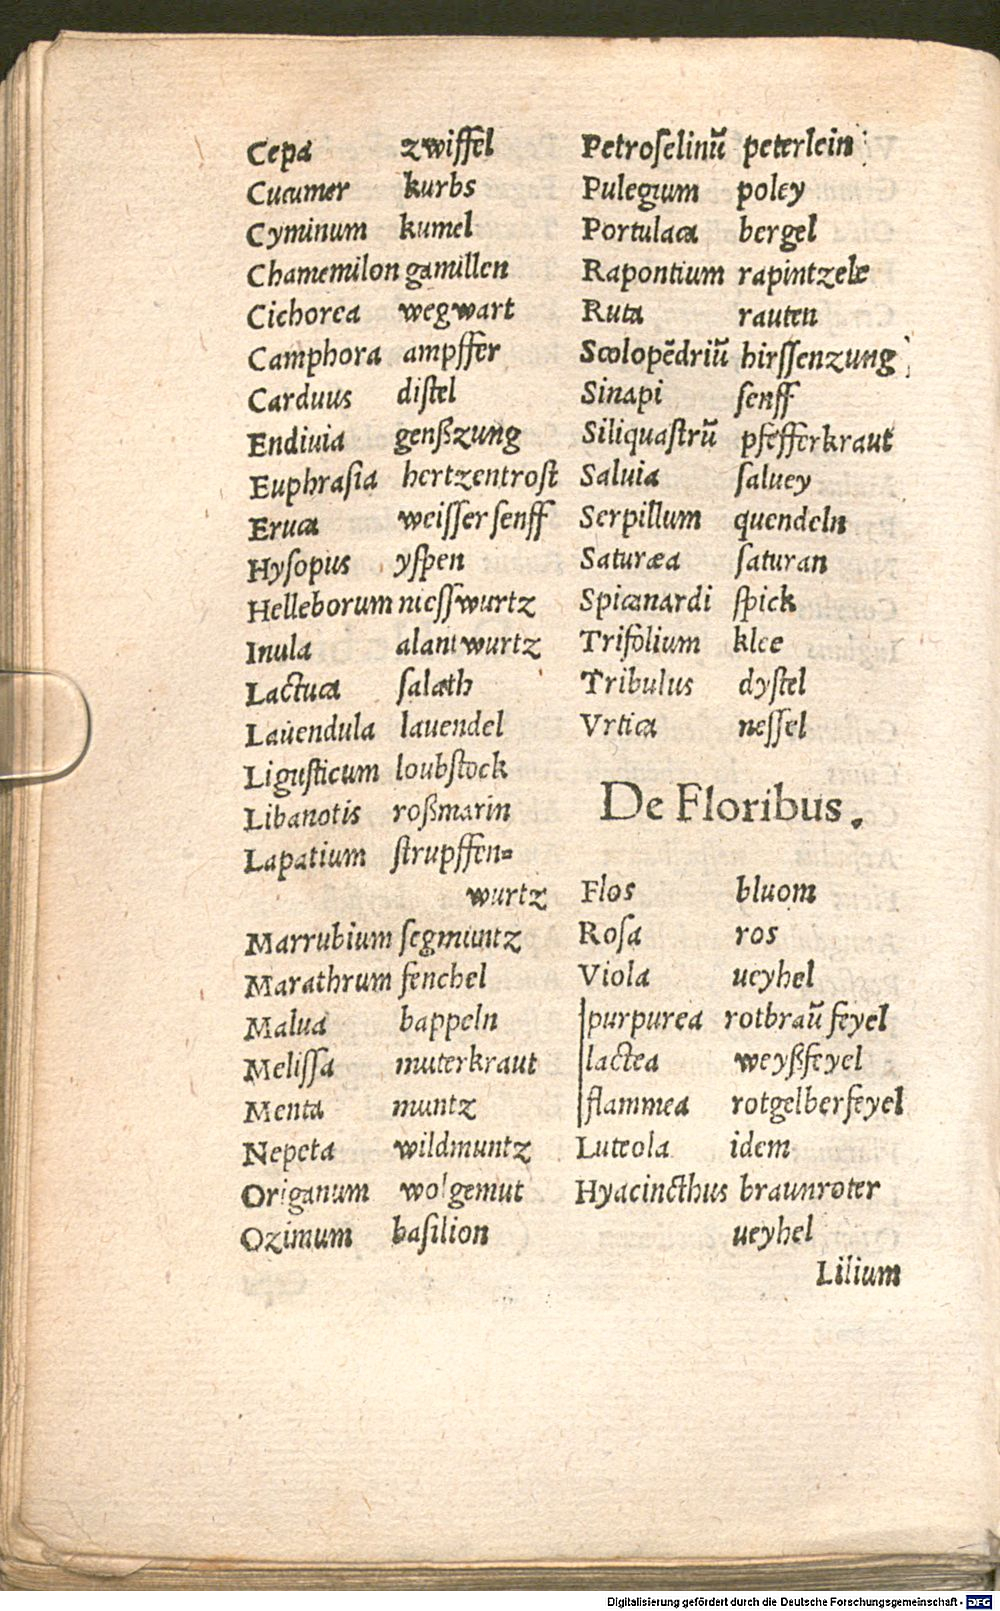 Cepa zwiffel
Cucumer kurbs
Cyminum kumel
Chamemilon gamillen
Cichorea wegwart
Camphora ampffer
Carduus distel
Endiuia genßzung
Euphrasia hertzentrost
Eruca weisser senff
Hysopus yspen
Helleborum niesswurtz
Inula alantwurtz
Lactuca salath
Lauendula lauendel
Ligusticum loubstock
Libanotis roßmarin
Lapatium strupffen=
wurtz
Marrubium segmuntz
Marathrum fenchel
Malua bappeln
Melissa muterkraut
Menta muntz
Nepeta wildmuntz
Origanum wolgemut
Ozimum basilion
Petroselinū peterlein
Pulegium poley
Portulaca bergel
Rapontium rapintzele
Ruta rauten
Scolopēdriū hirssenzung
Sinapi senff
Siliquastrū pfefferkraut
Saluia saluey
Serpillum quendeln
Saturæa saturan
Spicanardi spick
Trifolium klee
Tribulus dystel
Vrtica nessel
De Floribus.
Flos bluom
Rosa ros
Viola ueyhel
purpurea rotbraū feyel
lactea weyßfeyel
flammea rotgelberfeyel
Luteola idem
Hyacincthus braunroter
ueyhel
Lilium
Digitalisierung gefördert durch die Deutsche Forschungsgemeinschaft - DFG